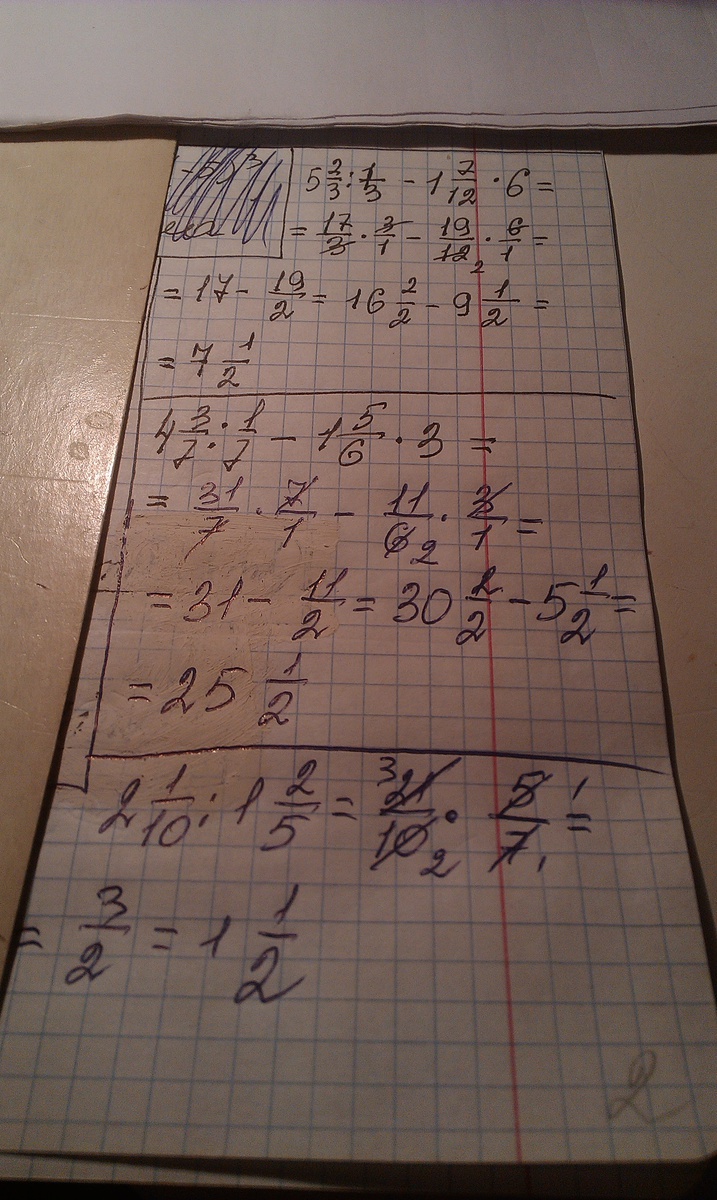 5 2/3 : 1/3 - 1 7/12 · 6 =
= 17/3 · 3/1 - 19/12 2 · 6/1 =
= 17 - 19/2 = 16 2/2 - 9 1/2 =
= 7 1/2
4 3/7 : 1/7 - 1 5/6 · 3 =
= 31/7 · 7/1 - 11/6 2 · 3/1 =
= 31 - 11/2 = 30 2/2 - 5 1/2 =
= 25 1/2
2 1/10 : 1 2/5 = 3 21/10 2 · 5/7 1 1 =
= 3/2 = 1 1/2
2